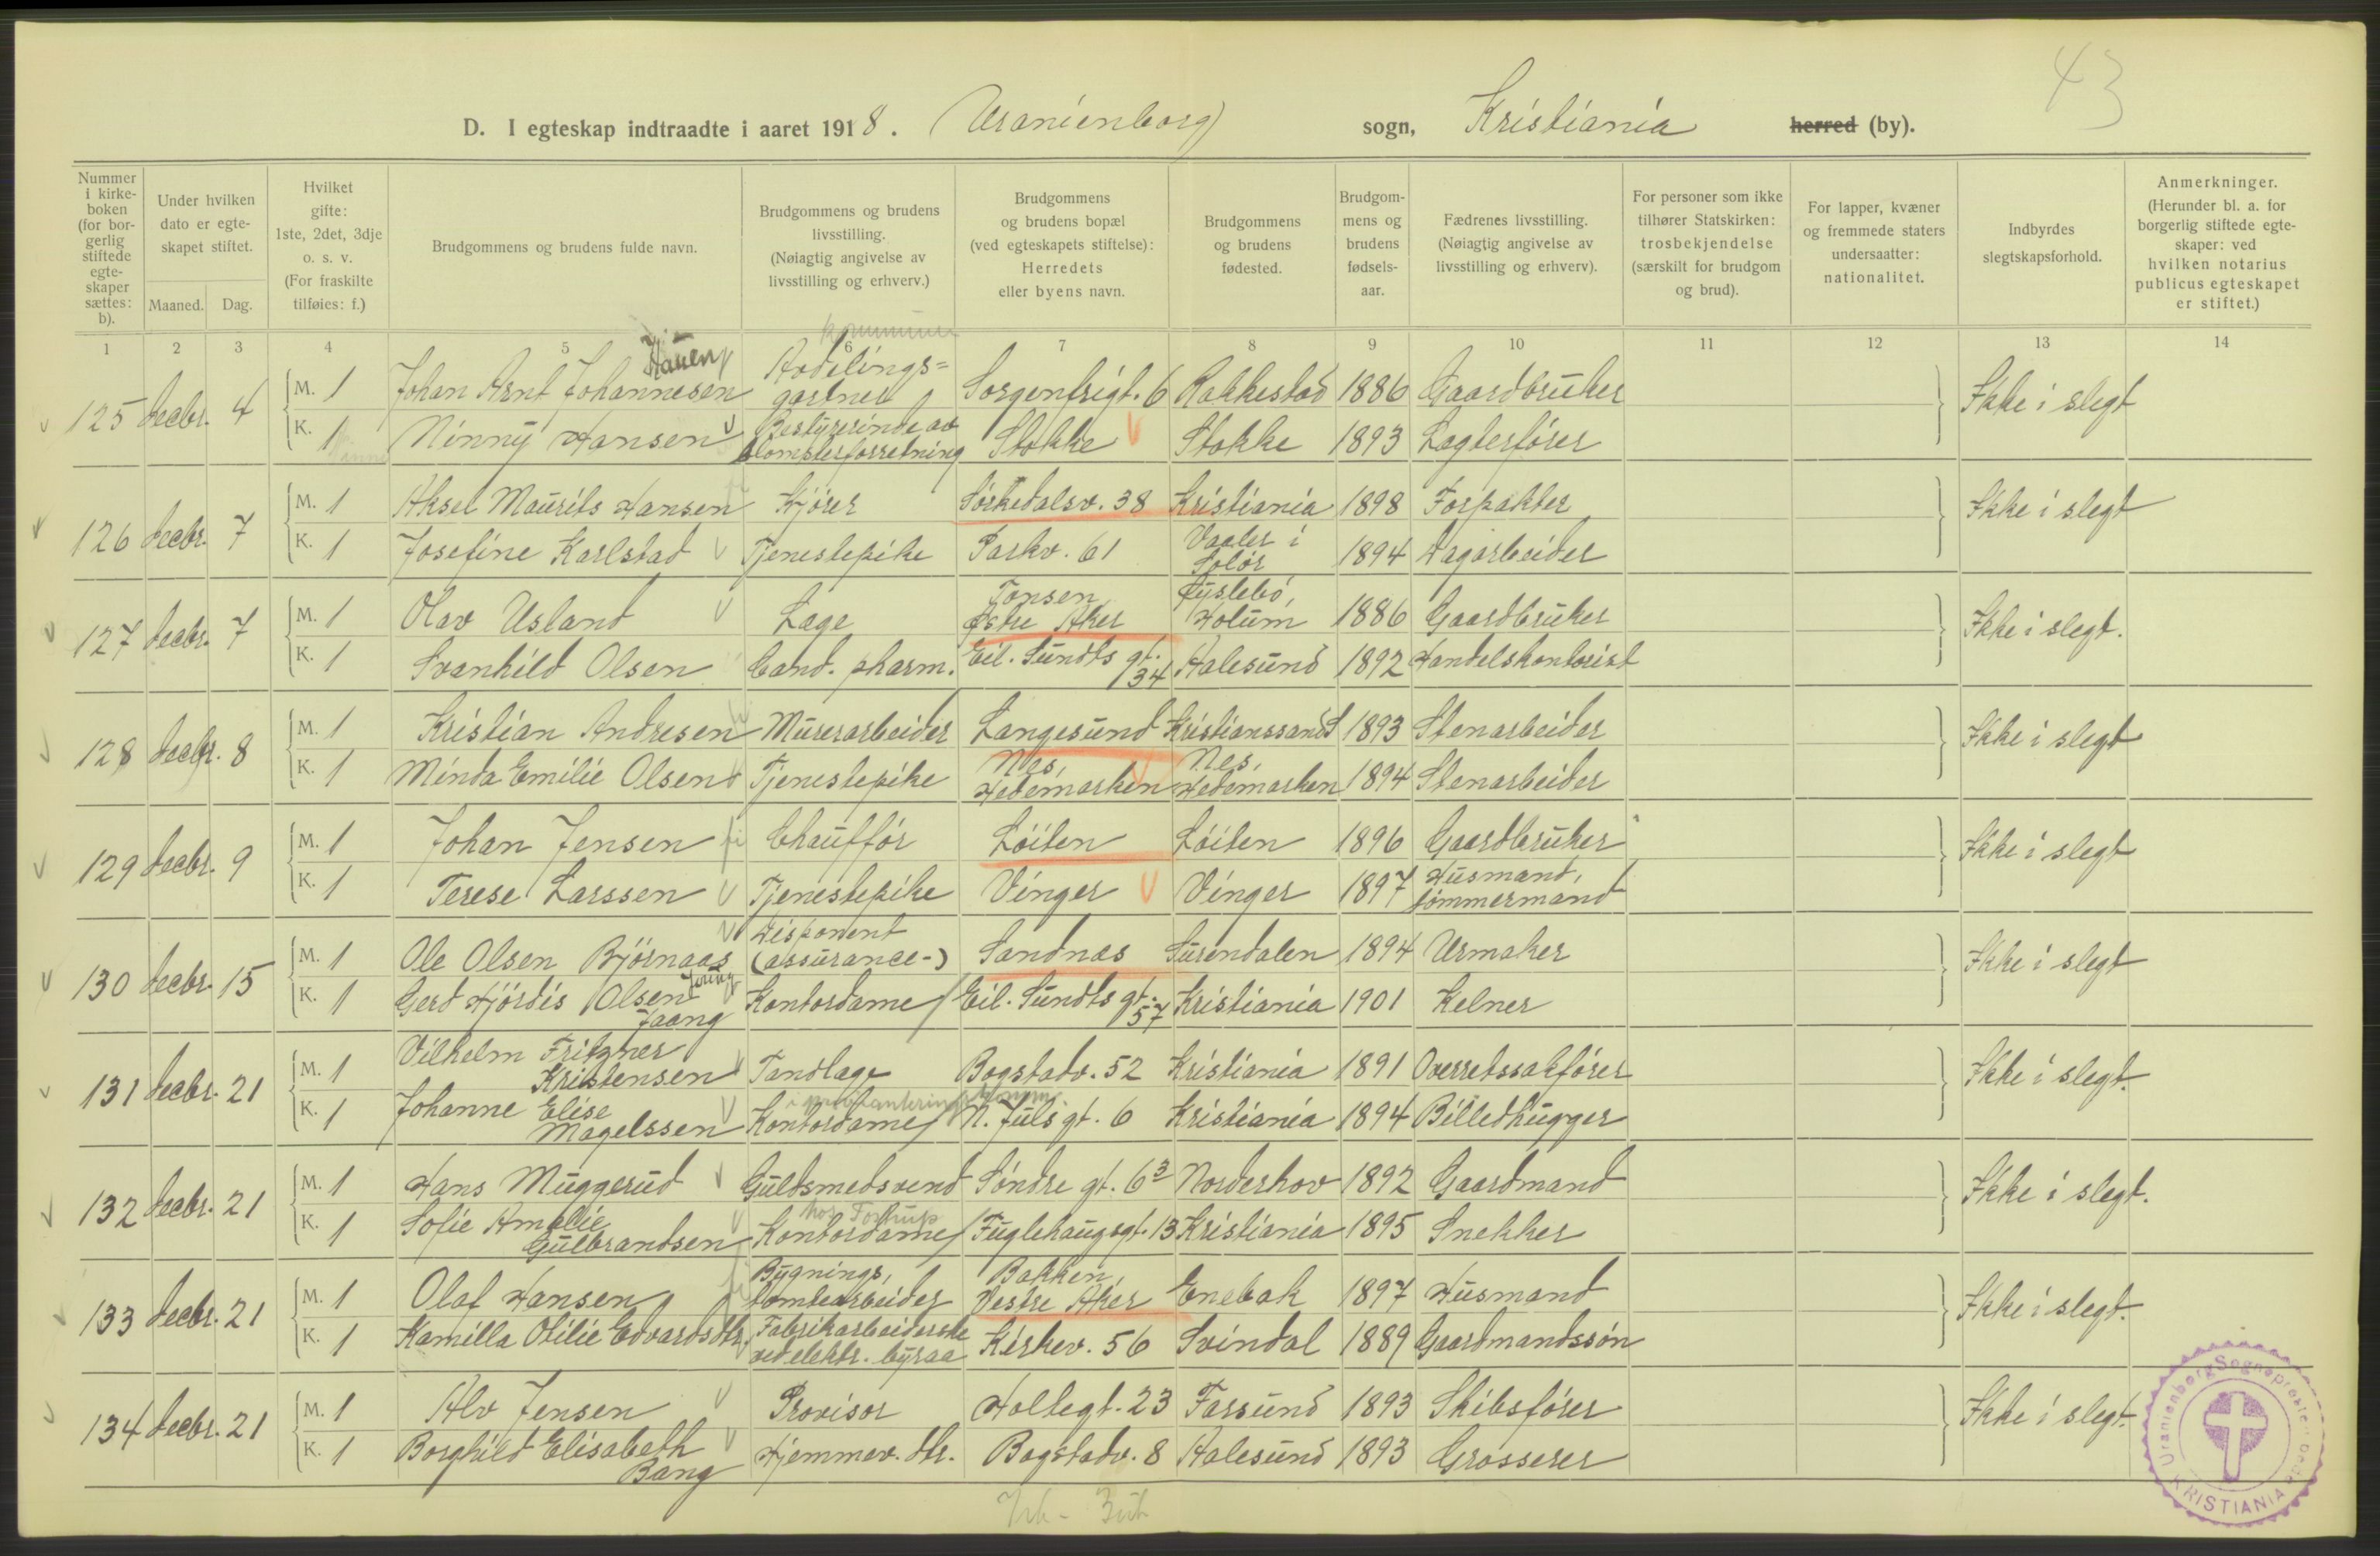 43
D. I egteskap indtraadte i aaret 1918. (Uranienborg) sogn, Kristiania herred (by).
Nummer i kirkeboken (for borgerlig stiftede egteskaper sættes: b).
Under hvilken dato er egteskapet stiftet.
Maaned. Dag.
Hvilket gifte: 1ste, 2det, 3dje o. s. v. (For fraskilte tilføies: f.)
Brudgommens og brudens fulde navn.
Brudgommens og brudens livsstilling. (Nøiagtig angivelse av livsstilling og erhverv.)
Brudgommens og brudens bopæl (ved egteskapets stiftelse): Herredets eller byens navn.
Brudgommens og brudens fødested.
Brudgommens og brudens fødselsaar.
Fædrenes livsstilling. (Nøiagtig angivelse av livsstilling og erhverv).
For personer som ikke tilhører Statskirken: trosbekjendelse (særskilt for brudgom og brud).
For lapper, kvæner og fremmede staters undersaatter: nationalitet.
Indbyrdes slegtskapsforhold.
Anmerkninger. (Herunder bl. a. for borgerlig stiftede egteskaper: ved hvilken notarius publicus egteskapet er stiftet.)
1 2 3 4 5 6 7 8 9 10 11 12 13 14
125 decbr. 4 M. 1 Johan Arnt Johannesen Hauen Avdelings= gartner Sorgenfrigt. 6 Rakkestad 1886 Gaardbruker Ikke i slegt
K. 1 Ninny Hansen Bestyrerinde av blomsterforretning Stokke Stokke 1893 Lagterfører
126 decbr. 7 M. 1 Aksel Maurits Hansen Kjører Sørkedalsv. 38 Kristiania 1898 Forpakter Ikke i slegt
K. 1 Josefine Karlstad Tjenestepike Parkv. 61 Vaaler i Solør 1894 Dagarbeider
127 decbr. 7 M. 1 Olav Usland Læge Tonsen, Østre Aker Øyslebø, Holum 1886 Gaardbruker Ikke i slegt.
K. 1 Svanhild Olsen Cand. pharm. Eil. Sundts gt. 34 Aalesund 1892 Handelskontorist
128 decbr. 8 M. 1 Kristian Andresen Murerarbeider Langesund Kristianssand S 1893 Stenarbeider Ikke i slegt
K. 1 Minda Emilie Olsen Tjenestepike Nes, Hedemarken Nes, Hedemarken 1894 Stenarbeider
129 decbr. 9 M. 1 Johan Jensen Chauffør Løiten Løiten 1896 Gaardbruker Ikke i slegt
K. 1 Terese Larssen Tjenestepike Vinger Vinger 1897 Husmand, tømmermand
130 decbr. 15 M. 1 Ole Olsen Bjørnaas Disponent (assurance-) Sandnæs Surendalen 1894 Urmaker Ikke i slegt
K. 1 Gerd Hjørdis Olsen Jaang Kontordame Eil. Sundts gt. 57 Kristiania 1901 Kelner
131 decbr. 21 M. 1 Vilhelm Fritzner Kristensen Tandlæge Bogstadv. 52 Kristiania 1891 Overretssakfører Ikke i slegt.
K. 1 Johanne Elise Magelssen Kontordame N. Juls gt. 6 Kristiania 1894 Billedhugger
132 decbr. 21 M. 1 Hans Muggerud Guldsmedsvend Søndre gt. 6³ Norderhov 1892 Gaardmand Ikke i slegt.
K. 1 Sofie Amalie Gulbrandsen Kontordame hos Tostrup Fuglehaugsgt. 13 Kristiania 1895 Snekker
133 decbr. 21 M. 1 Olaf Hansen Bygnings, tomtearbeider Bakken, Vestre Aker Enebak 1897 Husmand Ikke i slegt.
K. 1 Kamilla Otilie Edvardsdtr. Fabrikarbeiderske ved elektr. byraa Kirkev. 56 Svindal 1889 Gaardmandssøn
134 decbr. 21 M. 1 Alv Jensen Provisor Holtegt. 23 Farsund 1893 Skibsfører Ikke i slegt.
K. 1 Borghild Elisabeth Bang Hjemmev. dtr. Bogstadv. 8 Aalesund 1893 Grosserer
Uranienborg Sogneprest
KRISTIANIA